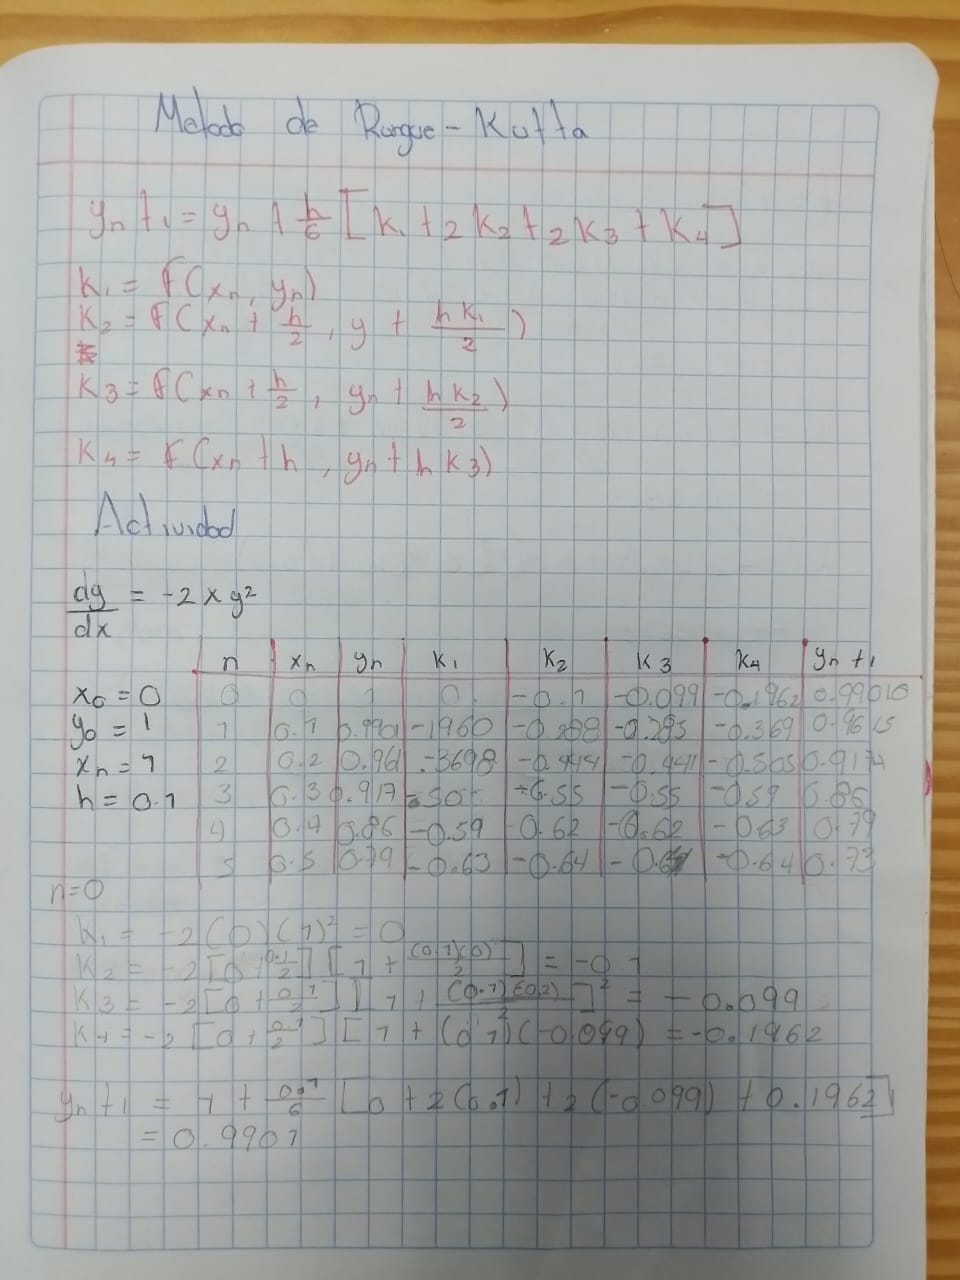 Metodo de Rungue-Kutta
yn+1 = yn + h/6 [K1 + 2K2 + 2K3 + K4]
K1 = f(xn, yn)
K2 = f(xn + h/2, y + hK1/2)
K3 = f(xn + h/2, yn + hK2/2)
K4 = f(xn + h, yn + hK3)
Actividad
dy/dx = -2xy²
n xn yn K1 K2 K3 K4 yn+1
x0 = 0 0 0 1 0. -0.1 -0.099 -0.1962 0.99010
y0 = 1 1 0.1 0.9901 -1960 -0.288 -0.285 -0.369 0.9615
xn = 1 2 0.2 0.961 -3698 -0.444 -0.441 -0.505 0.9174
h = 0.1 3 0.3 0.917 -0.55 -0.55 -0.59 0.86
4 0.4 0.86 -0.59 0.62 -0.62 -0.63 0.79
5 0.5 0.79 -0.63 -0.64 -0.64 0.73
n=0
K1 = -2(0)(1)² = 0
K2 = -2[0 + 0.1/2][1 + (0.1)(0)/2] = -0.1
K3 = -2[0 + 0.1/2][1 + (0.1)(-0.2)/2]² = -0.099
K4 = -2[0 + 0.1/2][1 + (0.1)(-0.099) = -0.1962
yn+1 = 1 + 0.1/6 [0 + 2(0.1) + 2(-0.099) + 0.1962]
= 0.9901